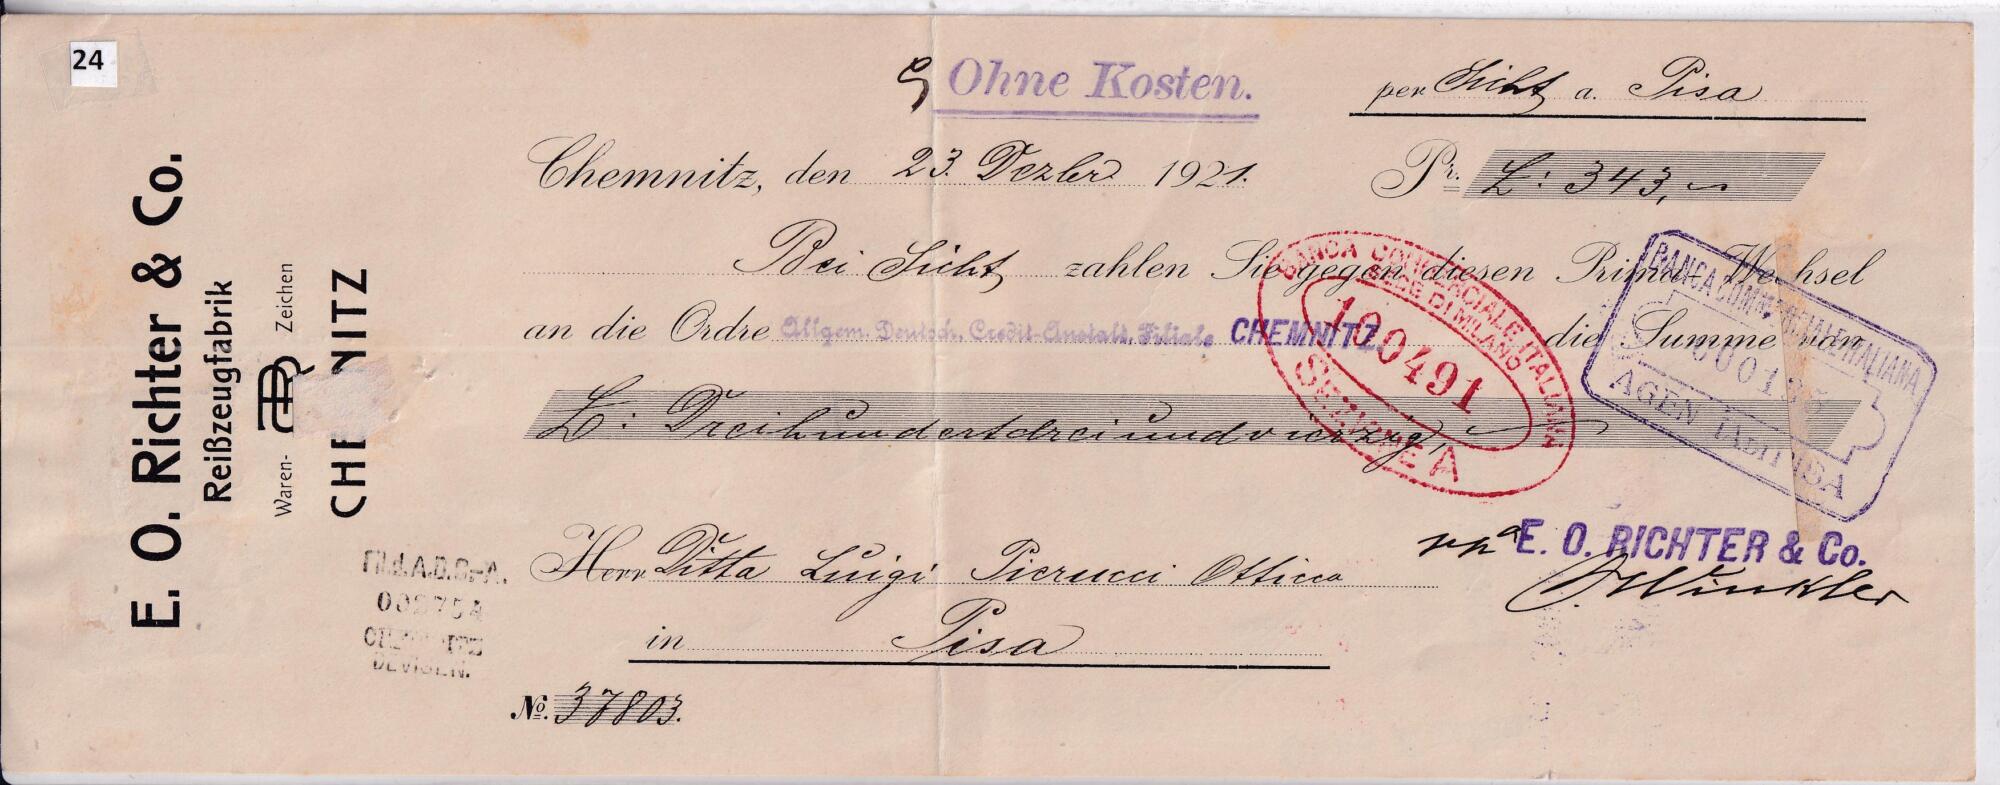 24
E. O. Richter & Co.
Reißzeugfabrik
Waren- Zeichen
CHE NITZ
Ohne Kosten.
per Sicht a. Pisa
Chemnitz, den 23. Dezbr 1921.
Pr. L: 343,
Bei Sicht zahlen Sie gegen diesen Prima-Wechsel
an die Ordre Allgem. Deutsch. Credit-Anstalt, Filiale CHEMNITZ die Summe von
L: Dreihundertdreiundvierzig,
BANCA COMMERCIALE ITALIANA
SEDE DI MILANO
100491
BANCA COMMERCIALE ITALIANA
AGENZIA DI PISA
Herr Ditta Luigi Pierucci Ottica
in Pisa
ppa E. O. RICHTER & Co.
Winkler
Fil.d.A.D.C.-A.
002754
CHEMNITZ
DEVISEN.
No. 37803.